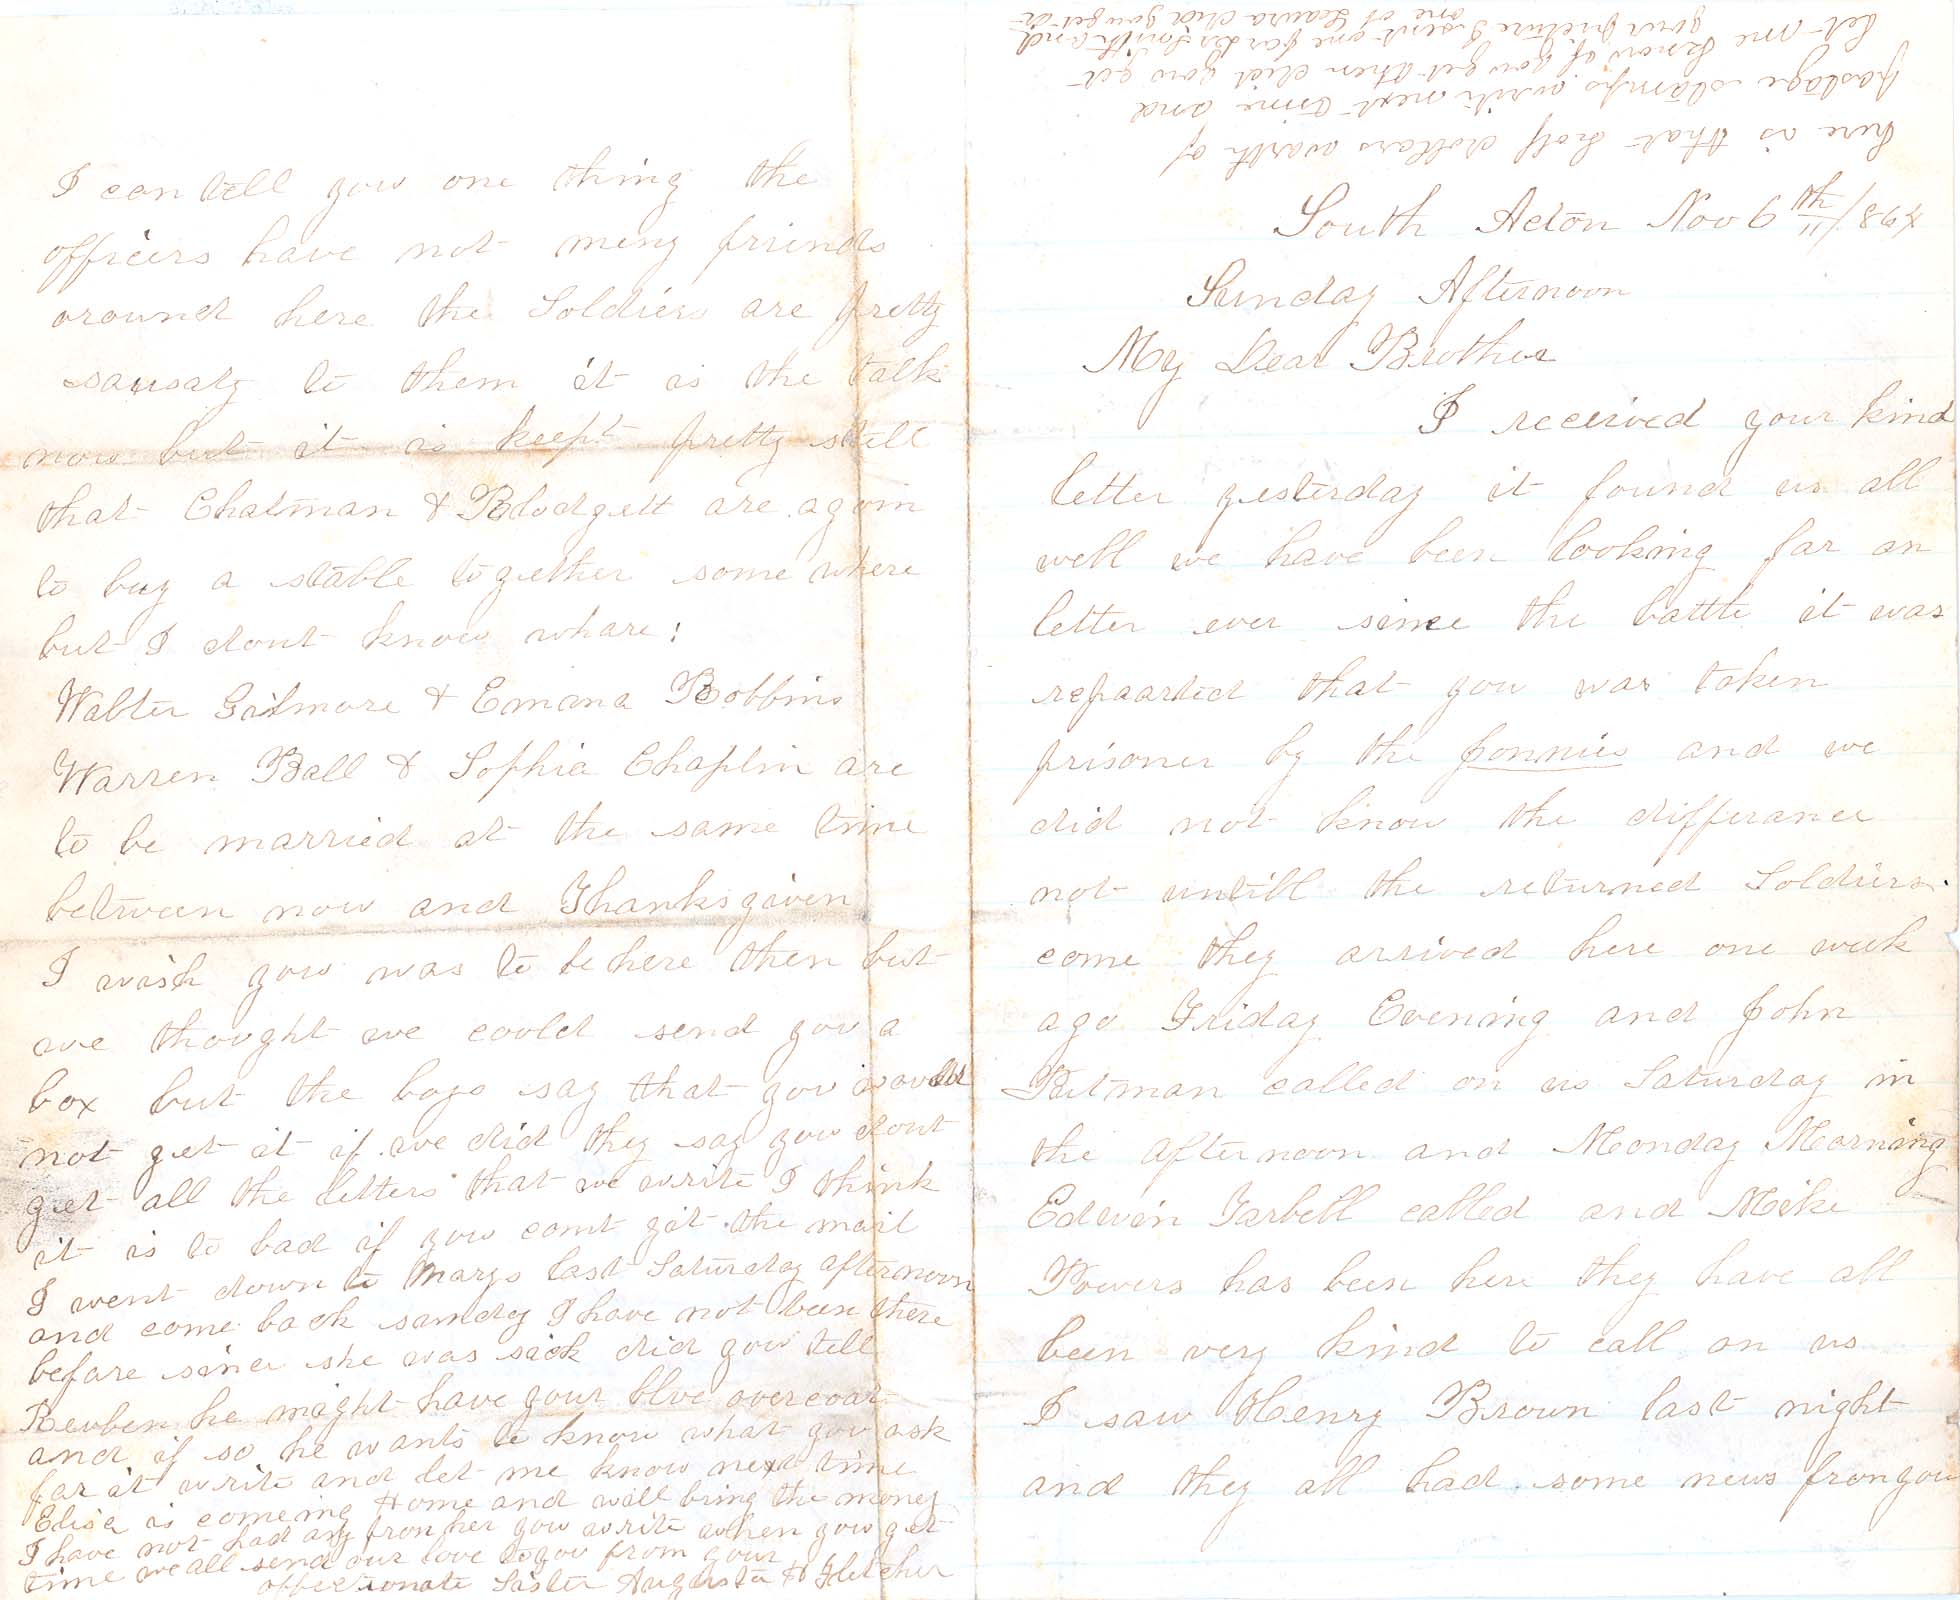 South Acton Nov 6th 11/1864
Sunday Afternoon
My Dear Brother
I received your kind
letter yesterday it found us all
well we have been looking far an
letter ever since the battle it was
repaarted that you was taken
prisoner by the Jonnies and we
did not know the differance
not untill the returned Soldiers.
come they arrived here one week
ago Friday Evening and John
Putman called on us Saturday in
the afternoon and Monday Morning
Edwin Tarbell called and Mike
Powers has been here they have all
been very kind to call on us
I saw Henry Brown last night
and they all had some news from you
I can tell you one thing the
officers have not meny friends
around here the Soldiers are pretty
sausaty to them it is the talk
now but it is keept pretty still
that Chatman & Blodgett are agoin
to buy a stable together some where
but I dont know whare:
Walter Gilmore & Emma Robbins
Warren Ball & Sophia Chaplin are
to be married at the same time
between now and Thanksgiven
I wish you was to be here then but
we thought we coold send you a
box but the boys say that you would
not get it if we did they say you dont
get all the letters that we write I think
it is to bad if you cornt git the mail
I went down to Marys last Saturday afternoon
and come back sunday I have not been there
before since she was sick did you tell
Reuben he might have your blue overcoat
and if so he wants to know what you ask
far it write and let me know next time
Elisa is comeing Home and will bring the money
I have not had any from her you write when you get
time we all send our love to you from your
affectionate Sister Augusta H Fletcher
here is that half dollars warth of
postage stamps write next time and
let me know if you get them did you get
your picture I sent one far and
one of Leaura did you get it